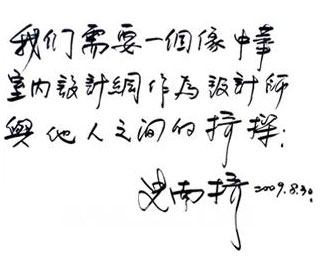 我们需要一個像中華
室内設計網作為設計師
與他人之间的橋樑；
史南橋 2009.8.30.